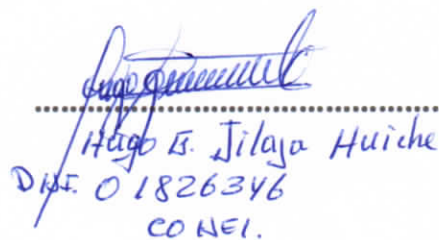 Hugo E. Jilaja Huiche
DNI. 01826346
CONEI.